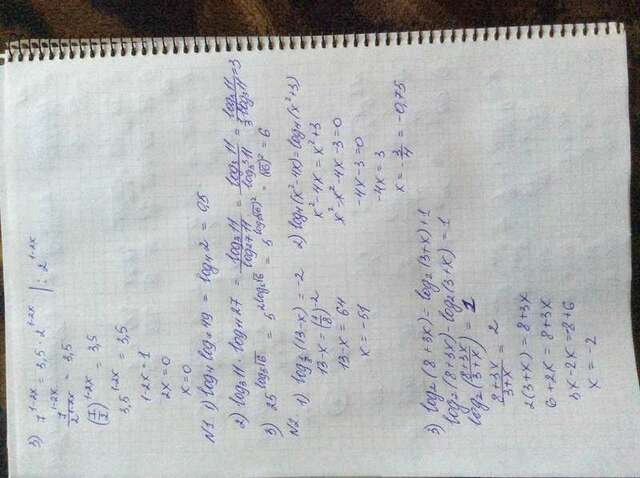 3) 7^(1-2x) = 3,5 · 2^(1-2x) | : 2^(1-2x)
7^(1-2x)/2^(1-2x) = 3,5
(7/2)^(1-2x) = 3,5
3,5^(1-2x) = 3,5
1-2x = 1
2x = 0
x = 0
N1. 1) log₄ log₇ 49 = log₄ 2 = 0,5
2) log₃11 · log₁₁27 = log₃11/log₂₇11 = log₃11/log₃³11 = log₃11/(1/3 log₃11) = 3
3) 25^(log₅√6) = 5^(2log₅√6) = 5^(log₅(√6)²) = (√6)² = 6
N2. 1) (13-x) = -2
13-x = (1/8)^(-2)
13-x = 64
x = -51
2) log₄(x²-4x) = log₄(x²+3)
x²-4x = x²+3
x²-x²-4x-3=0
-4x-3=0
-4x = 3
x = -3/4 = -0,75
3) log₂(8+3x) = log₂(3+x)+1
log₂(8+3x) - log₂(3+x) = 1
log₂((8+3x)/(3+x)) = 1
(8+3x)/(3+x) = 2
2(3+x) = 8+3x
6+2x = 8+3x
3x-2x = -8+6
x = -2